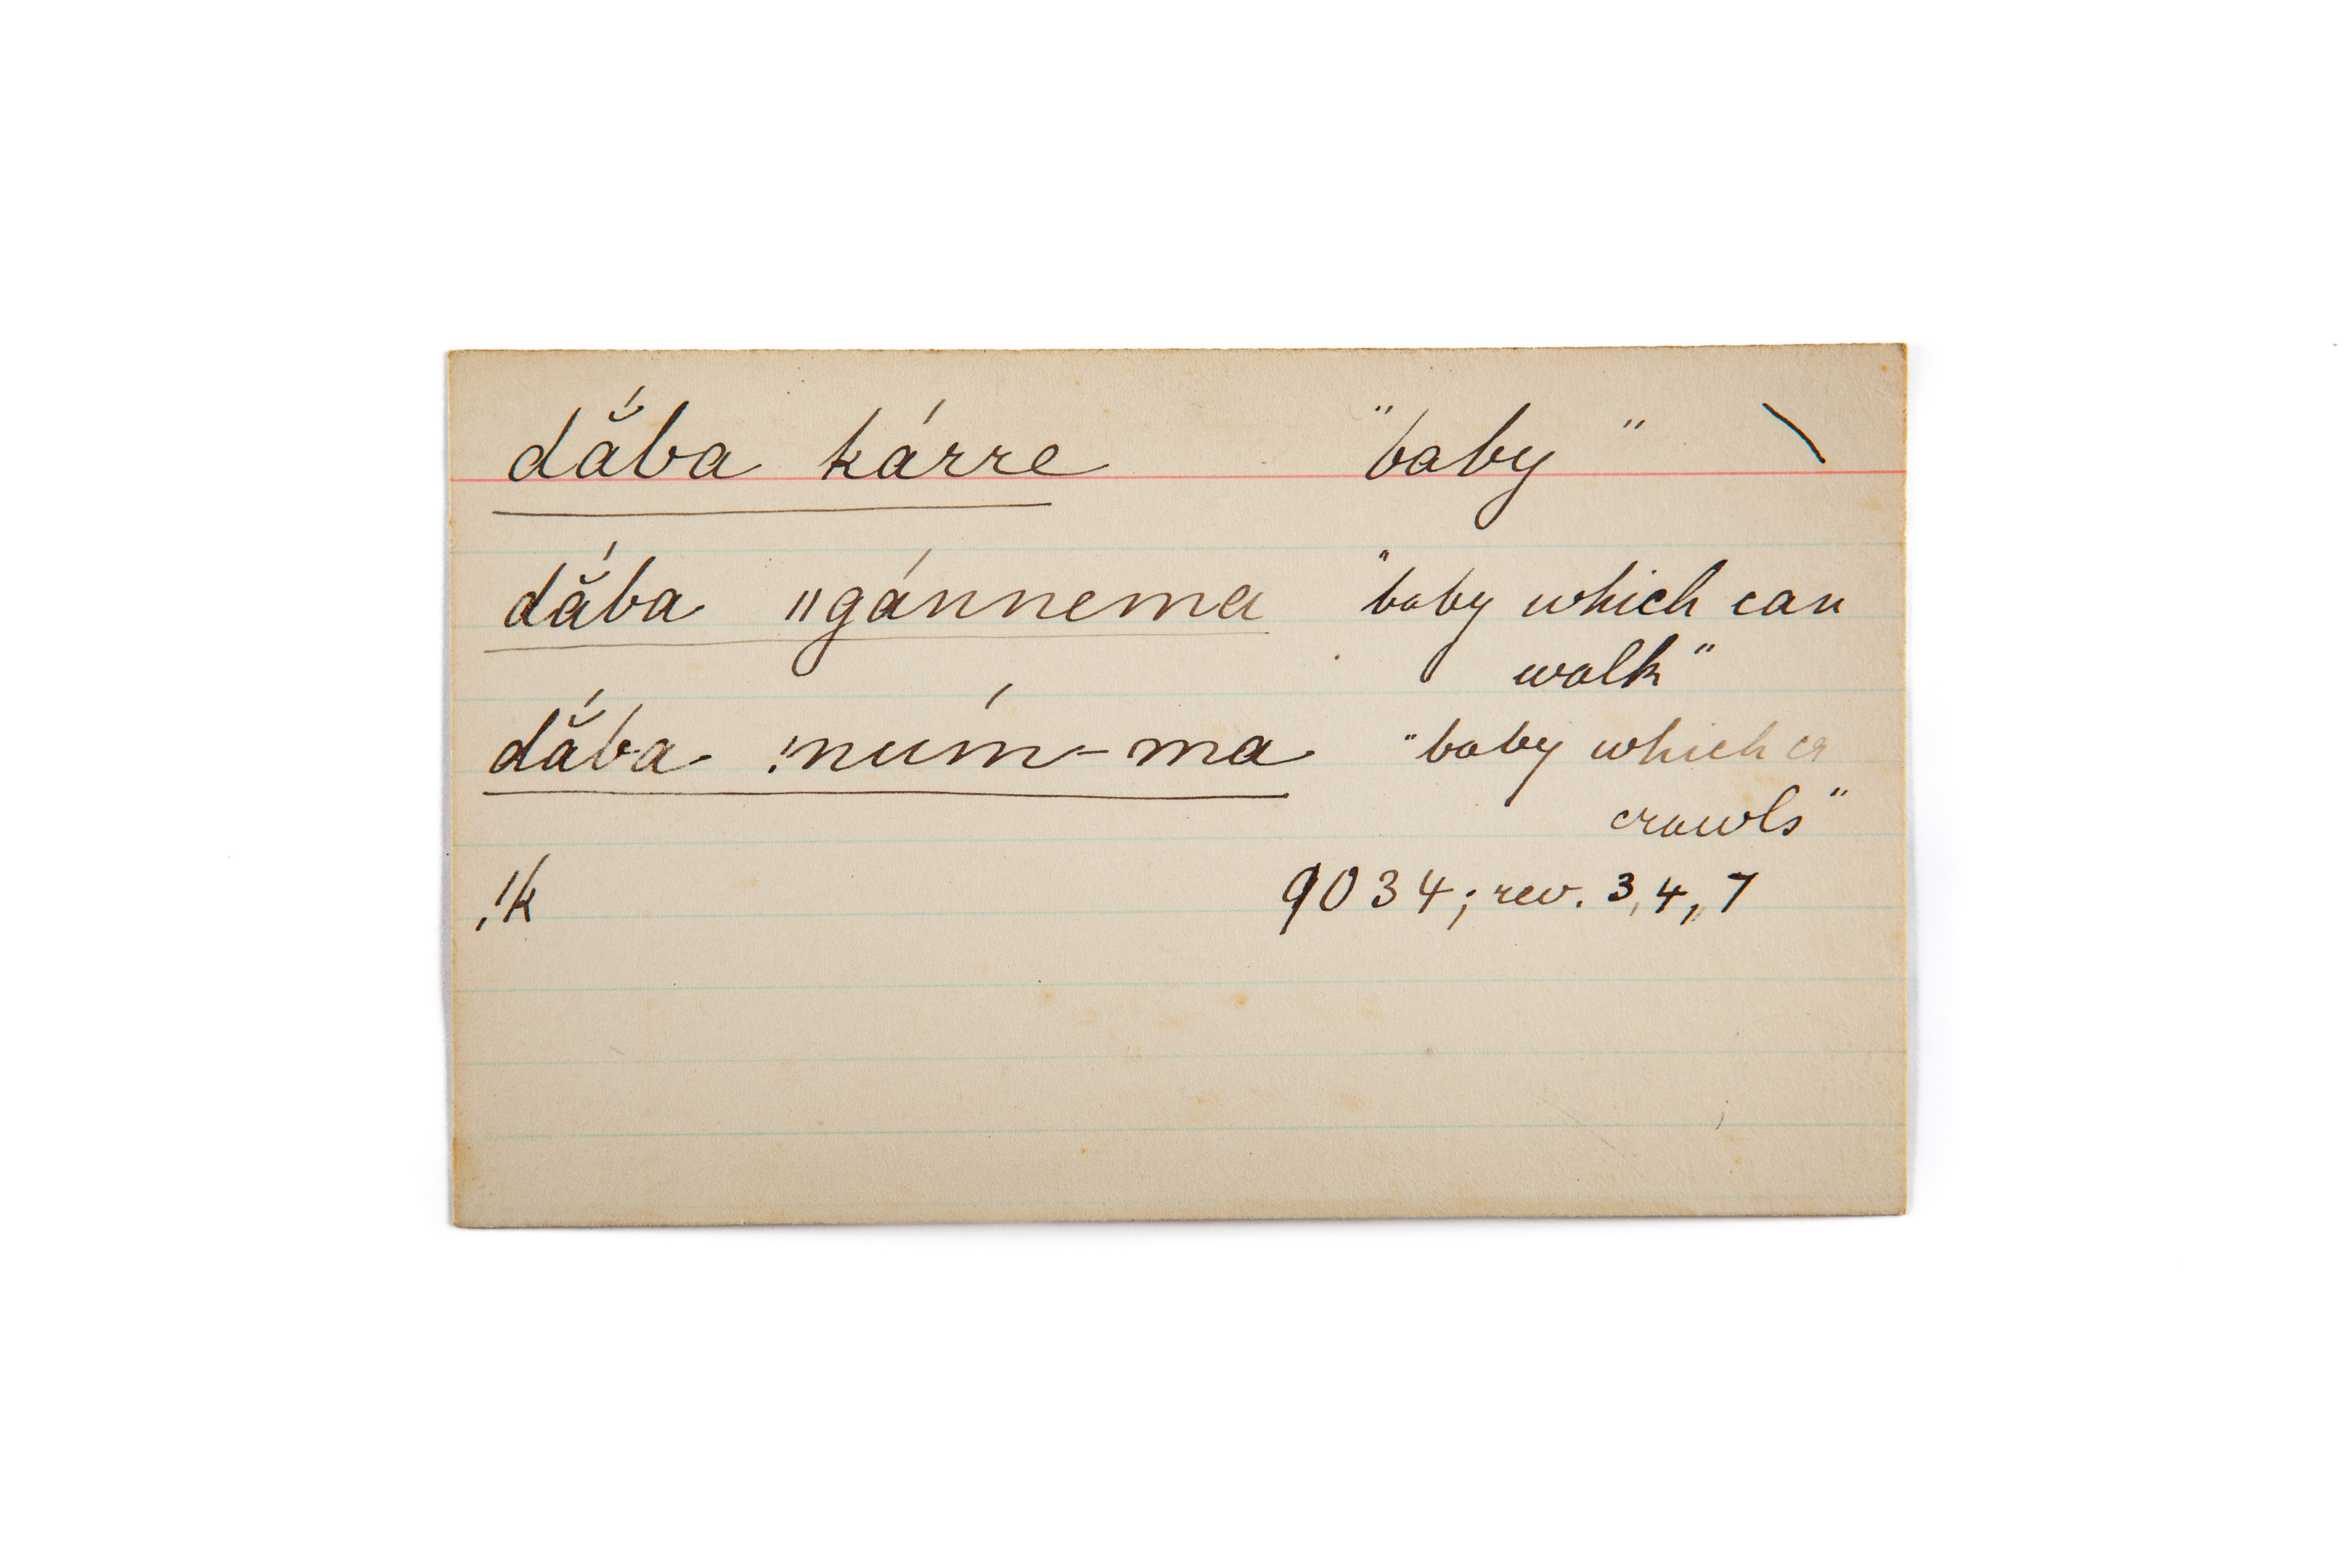 dắba kárre "baby" \
dắba ǁgánnema "baby which can
walk"
dắba !núm-ma "baby which
crawls"
!k 9034; rev. 3, 4, 7